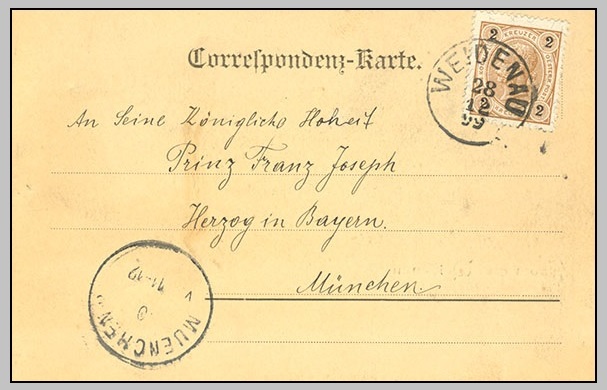 Correspondenz-Karte.
2 KREUZER 2
2 2
WEIDENAU
28
12
99
An Seine Königliche Hoheit
Prinz Franz Joseph
Herzog in Bayern.
München.
MUENCHEN
11-12
V